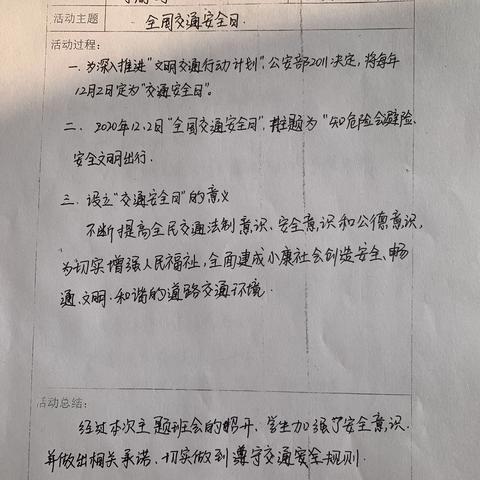 活动主题 全国交通安全日.
活动过程:
一.为深入推进"文明交通行动计划",公安部2011决定,将每年
12月2日定为"交通安全日"。
二、2020年12.2日"全国交通安全日",主题为"知危险会避险、
安全文明出行.
三.设立"交通安全日"的意义
不断提高全民交通法制意识、安全意识和公德意识,
为切实增强人民福祉,全面建成小康社会创造安全、畅
通、文明、和谐的道路交通环境.
活动总结:
经过本次主题班会的召开,学生加强了安全意识.
并做出相关承诺、切实做到遵守交通安全规则.